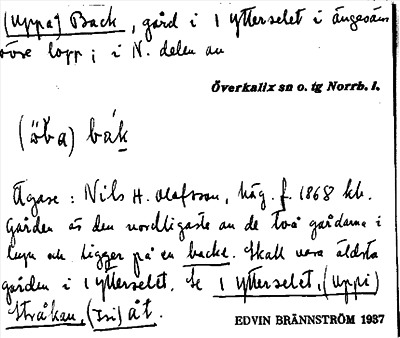 (Uppa) Back, gård i 1 Ytterselet i Ängesåns
övre lopp; i N. delen av
Överkalix sn o. tg Norrb. l.
(öba) bak
Ägare: Nils H. Olofsson, häg. f. 1868 kb.
Gården är den nordligaste av de två gårdarna i
byn och ligger på en backe. Skall vara äldsta
gården i 1 Ytterselet. Se 1 Ytterselet, (Uppi)
Stråkan, (Isi) åt.
EDVIN BRÄNNSTRÖM 1937